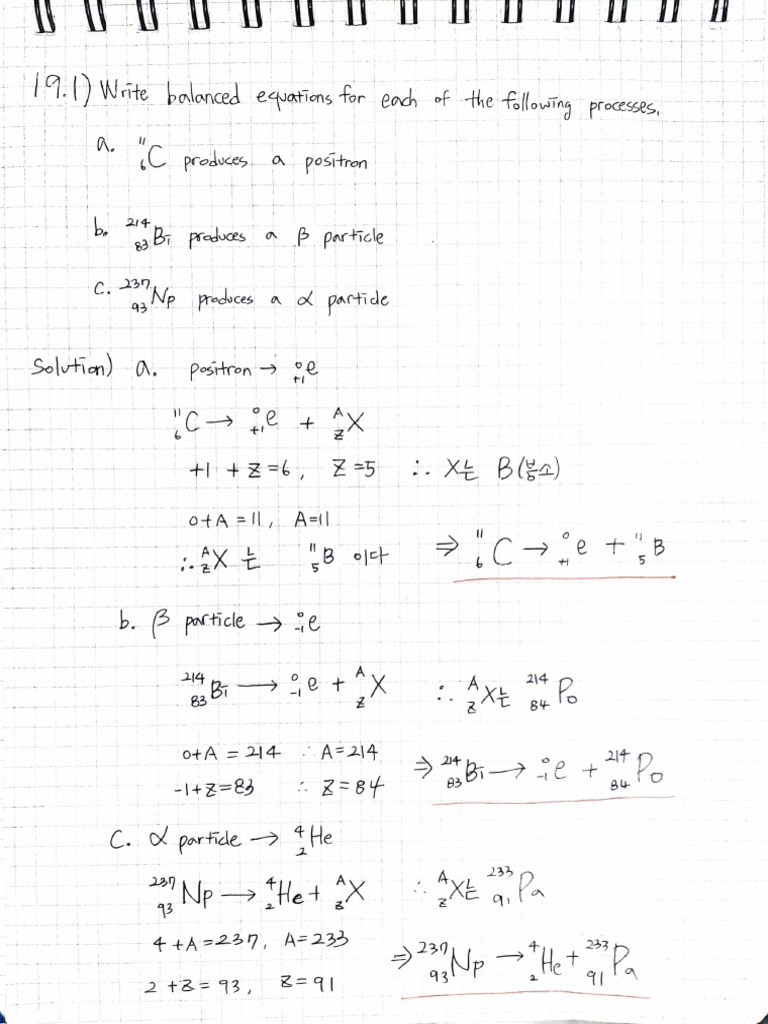 19.1) Write balanced equations for each of the following processes.
a. ¹¹₆C produces a positron
b. ²¹⁴₈₃Bi produces a β particle
c. ²³⁷₉₃Np produces a α particle
Solution) a. positron → ⁰₊₁e
¹¹₆C → ⁰₊₁e + ᴬ_ZX
+1 + Z = 6, Z = 5 ∴ X는 B (붕소)
0+A = 11, A=11
∴ ᴬ_ZX 는 ¹¹₅B 이다 ⇒ ¹¹₆C → ⁰₊₁e + ¹¹₅B
b. β particle → ⁰₋₁e
²¹⁴₈₃Bi → ⁰₋₁e + ᴬ_ZX ∴ ᴬ_ZX는 ²¹⁴₈₄Po
0+A = 214 ∴ A=214
-1+Z=83 ∴ Z=84 ⇒ ²¹⁴₈₃Bi → ⁰₋₁e + ²¹⁴₈₄Po
C. α particle → ⁴₂He
²³⁷₉₃Np → ⁴₂He + ᴬ_ZX ∴ ᴬ_ZX는 ²³³₉₁Pa
4+A=237, A=233
2+Z=93, Z=91 ⇒ ²³⁷₉₃Np → ⁴₂He + ²³³₉₁Pa